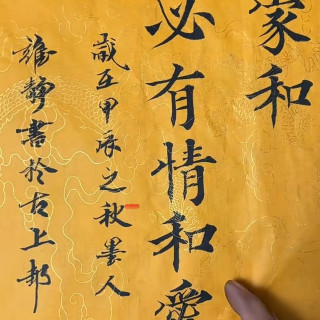 家和
必有情和愛
歲在甲辰之秋墨人
靜書於古上邽